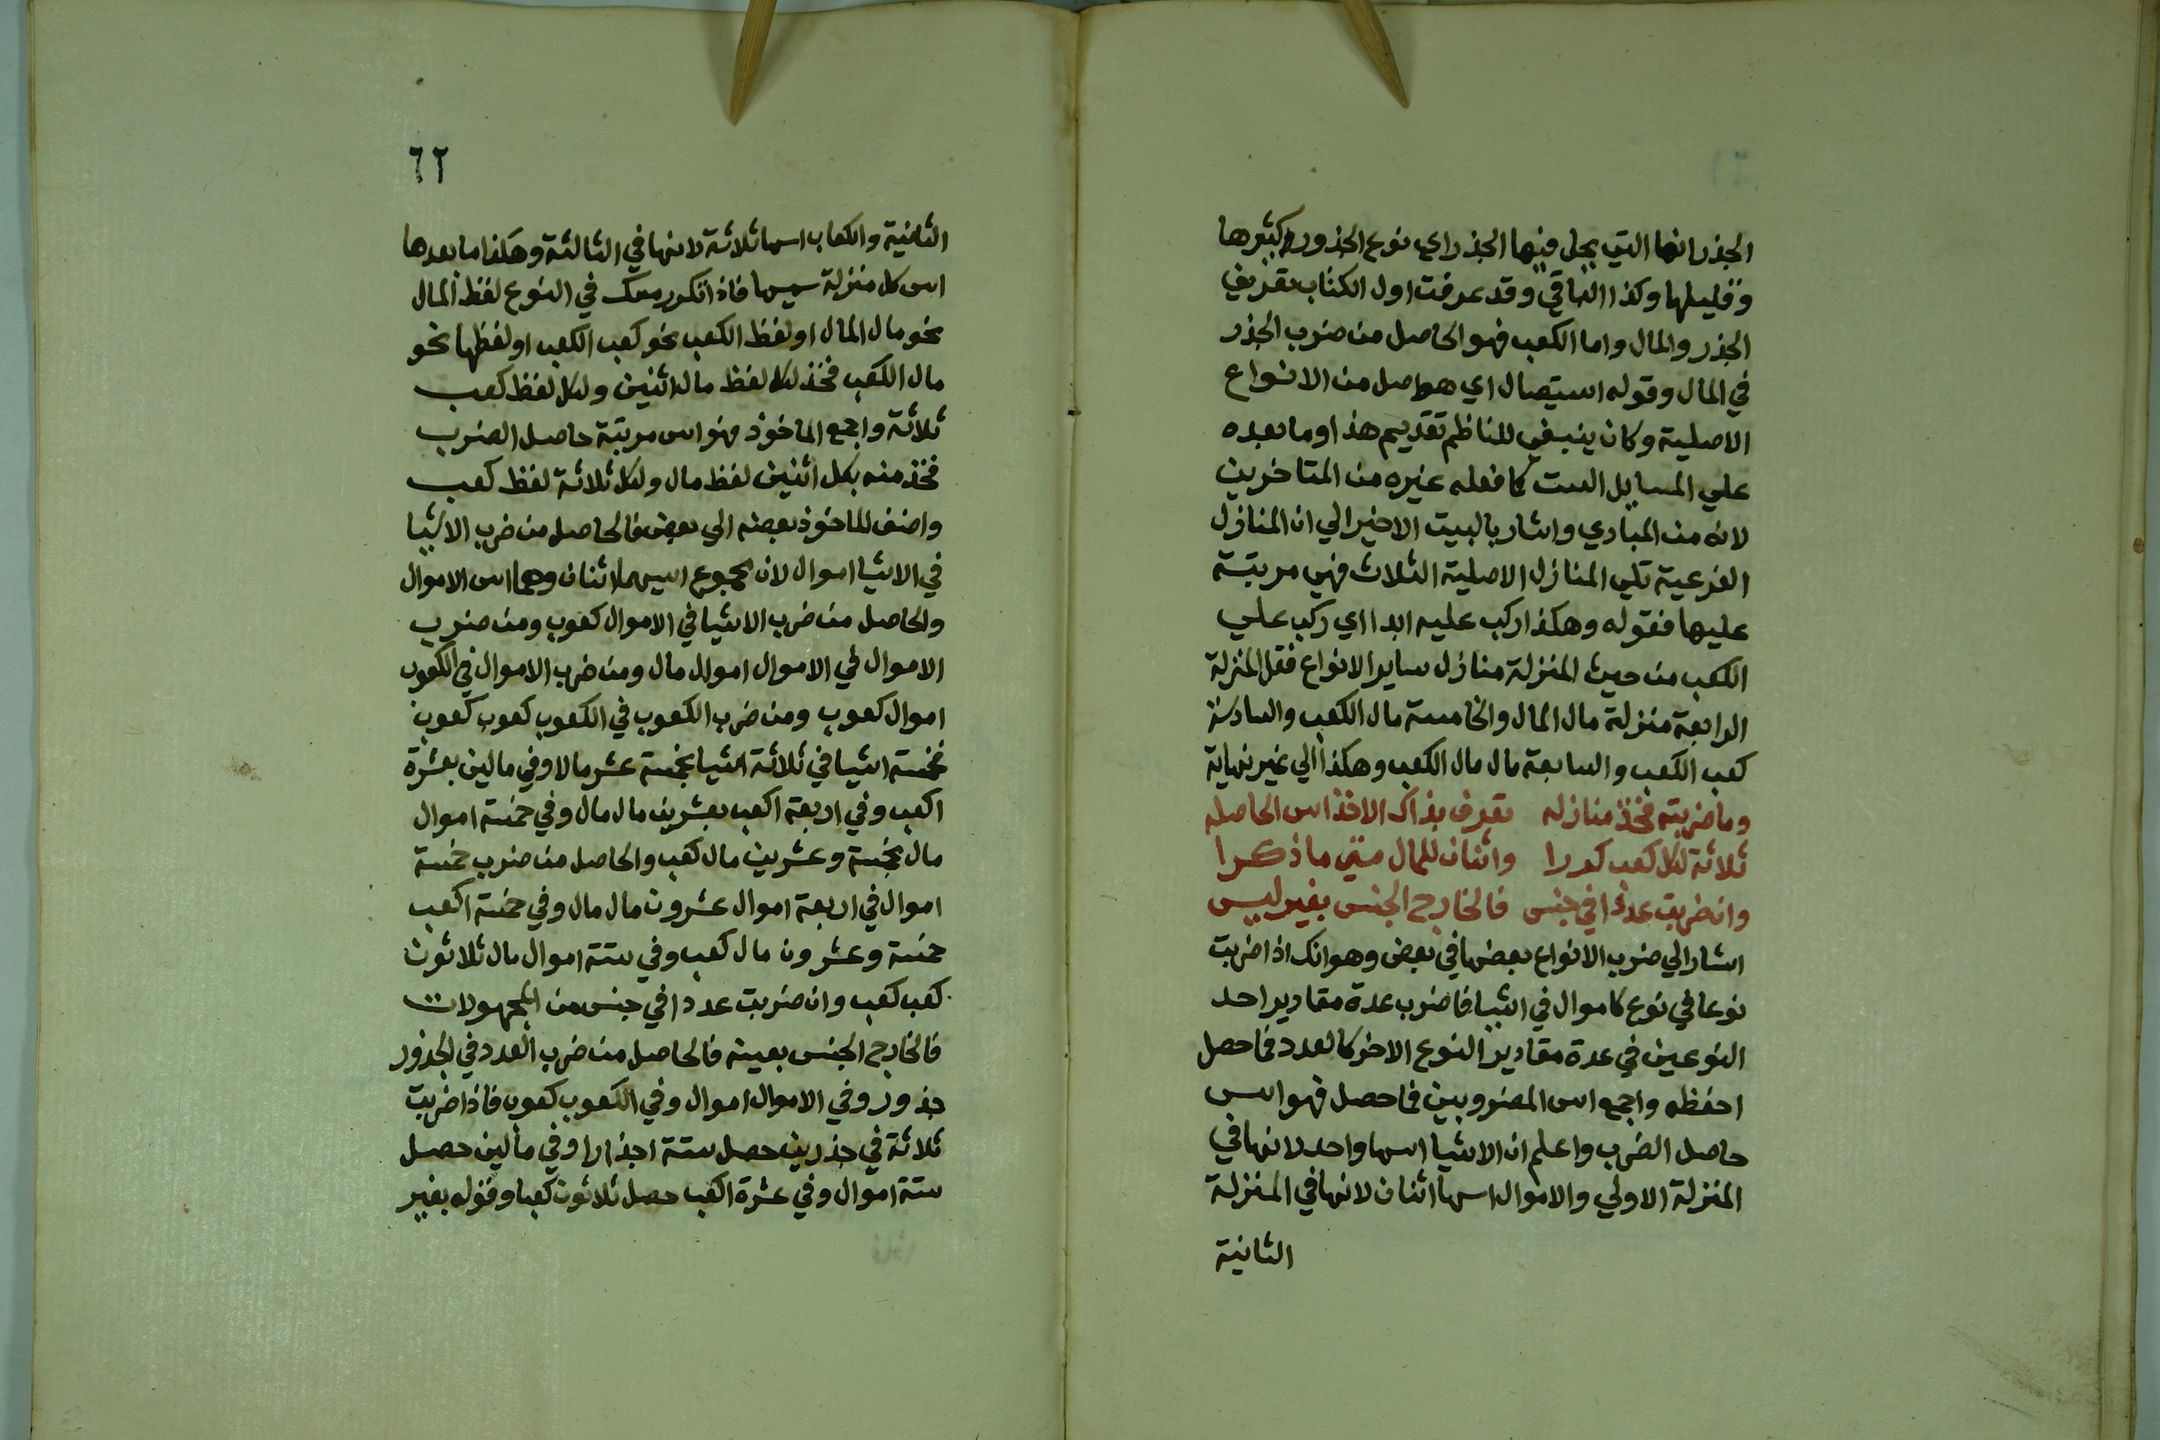 الجذر انها التي يحل فيها الجذر اي نوع الجذور كثيرها
وقليلها وكذا الباقي وقد عرفت اول الكتاب تعريف
الجذر والمال واما الكعب فهو الحاصل من ضرب الجذر
في المال وقوله استيصال اي هو اصل من الانواع
الاصلية وكان ينبغي للناظم تقديم هذا وما بعده
علي المسايل الست كما فعله غيره من المتاخرين
لانه من المبادي واشار بالبيت الاخير الي ان المنازل
الفرعية تلي المنازل الاصلية الثلاث فهي مرتبة
عليها فقوله وهكذا ركب عليه ابدا اي ركب علي
الكعب من حيث المنزلة منازل ساير الانواع فقل المنزلة
الرابعة منزلة مال المال والخامسة مال الكعب والسادسة
كعب الكعب والسابعة مال مال الكعب وهكذا الي غير نهاية
وما ضربته فخذ منازله تعرف بذاك الاخذ اس الحاصله
ثلاثة لكل كعب كررا واثنان للمال متي ما ذكرا
وان ضربت عددا في جنس فالخارج الجنس بغير لبس
اشار الي ضرب الانواع بعضها في بعض وهو انك اذا ضربت
نوعا في نوع كاموال في اشيا فاضرب عدة مقادير احد
النوعين في عدة مقادير النوع الاخر كالعدد فما حصل
احفظه واجمع اس المضروبين فما حصل فهو اس
حاصل الضرب واعلم ان الاشيا اسها واحد لانها في
المنزلة الاولي والاموال اسها اثنان لانها في المنزلة
الثانية
٦٢
الثانية والكعاب اسها ثلاثة لانها في الثالثة وهكذا ما بعدها
اس كل منزلة سميها فاذا تكرر معك في النوع لفظ المال
نحو مال المال او لفظ الكعب نحو كعب الكعب او لفظها نحو
مال الكعب فخذ لكل لفظ مال اثنين ولكل لفظ كعب
ثلاثة واجمع الماخوذ فهو اس مرتبة حاصل الضرب
فخذ منه بكل اثنين لفظ مال ولكل ثلاثة لفظ كعب
واضف الماخوذ بعضه الي بعض فالحاصل من ضرب الاشيا
في الاشيا اموال لان مجموع اسيهما اثنان وهما اس الاموال
والحاصل من ضرب الاشيا في الاموال كعوب ومن ضرب
الاموال في الاموال اموال مال ومن ضرب الاموال في الكعوب
اموال كعوب ومن ضرب الكعوب في الكعوب كعوب كعوب
فخمسة اشيا في ثلاثة اشيا بخمسة عشر مالا وفي مالين بعشرة
اكعب وفي اربعة اكعب بعشرين مال مال وفي خمسة اموال
مال بخمسة وعشرين مال كعب والحاصل من ضرب خمسة
اموال في اربعة اموال عشرون مال مال وفي خمسة اكعب
خمسة وعشرون مال كعب وفي ستة اموال مال ثلاثون
كعب كعب وان ضربت عددا في جنس من المجهولات
فالخارج الجنس بعينه فالحاصل من ضرب العدد في الجذور
جذور وفي الاموال اموال وفي الكعوب كعوب فاذا ضربت
ثلاثة في جذرين حصل ستة اجذار او في مالين حصل
ستة اموال وفي عشرة اكعب حصل ثلاثون كعبا وقوله بغير